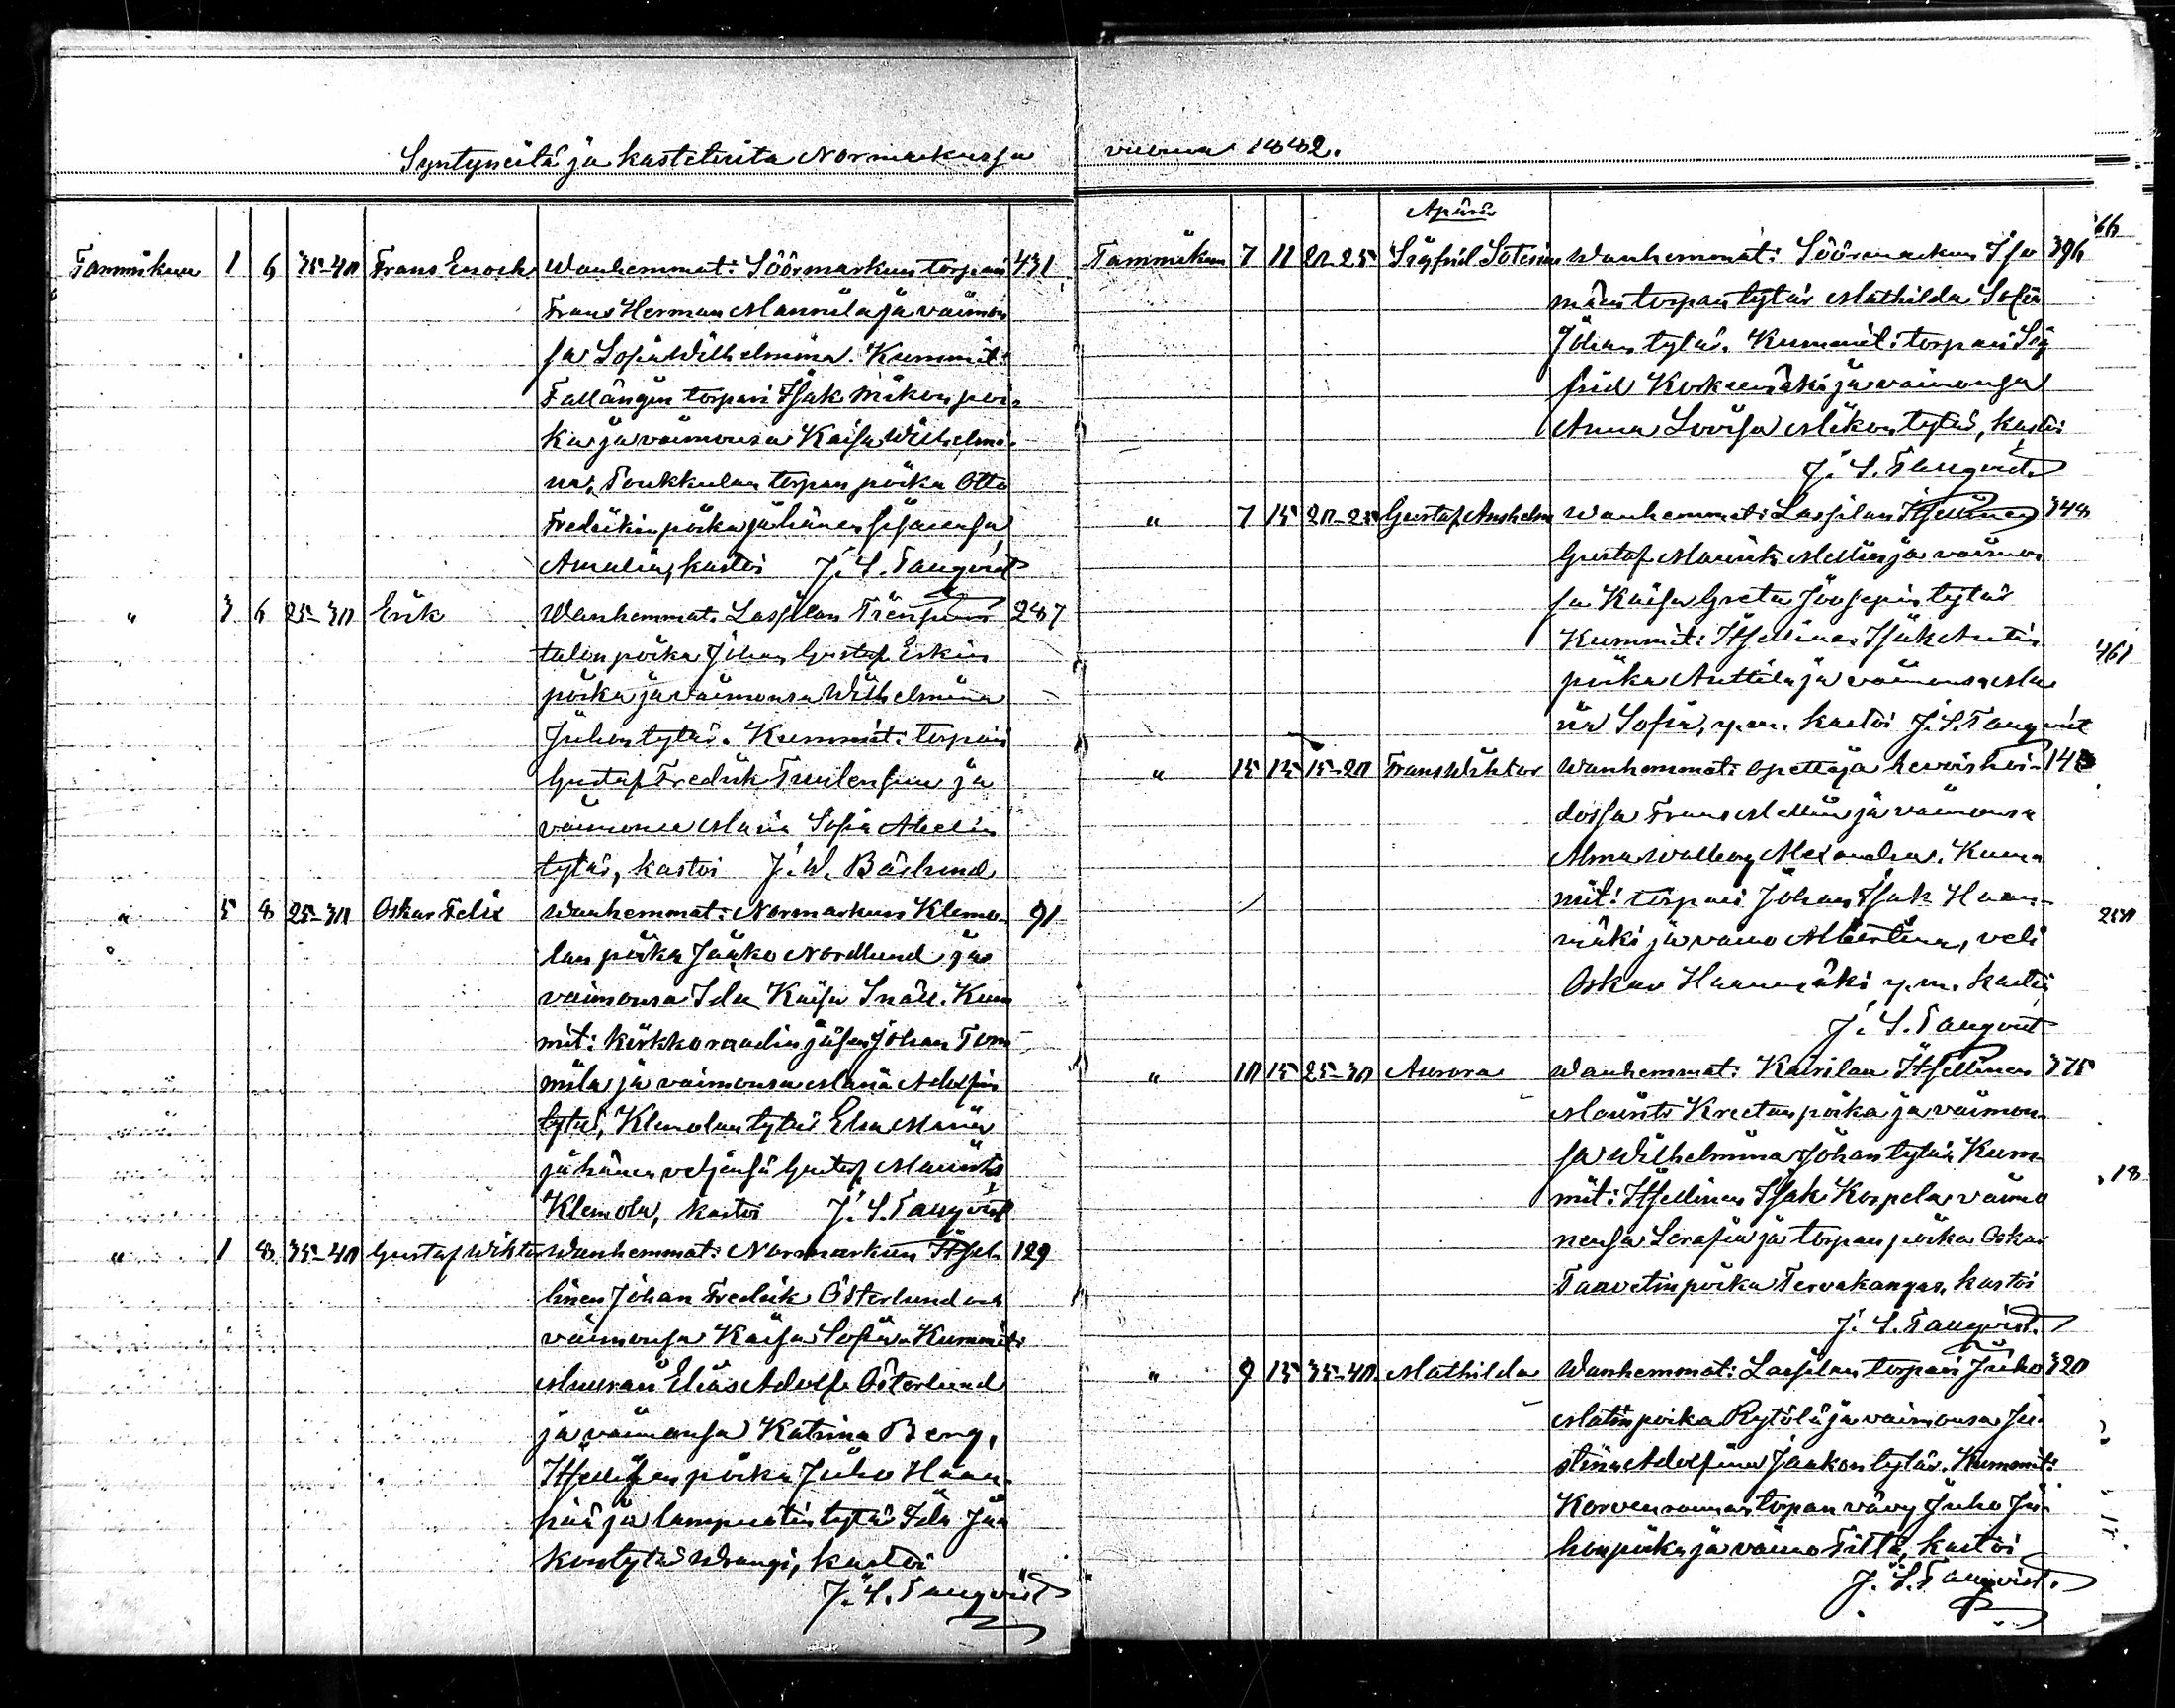 Syntyneitä ja kastetuita Normarkussa vuonna 1882.
Tammikuu 1 6 35-40 Frans Enoch Wanhemmat: Söörmarkun torpari 431
Frans Herman Mannila ja vaimon
sa Sofia Wilhelmina. Kummit:
torpari Isak Mikon poi-
ka ja vaimonsa Kaisa Wilhelmi-
na, torpan poika Otto
Fredrikin poika ja hänen sisarensa
Amalia, kastoi J. S. Tanqvist
" 3 6 25-30 Erik Wanhemmat: Lassilan 287
talon poika Johan Gustaf Erkin
poika ja vaimonsa Wilhelmina
Juhon tytär. Kummit: torpari
Gustaf Fredrik ja
vaimonsa Maria Sofia Abelin
tytär, kastoi J. W. Båslund
" 5 8 25-30 Oskar Felix Wanhemmat: Normarkun Klemo- 91
lan poika Jaako Nordlund ja
vaimonsa Ida Kaisa Snäll. Kum
mit: kirkkoraadin jäsen Johan Tom
mila ja vaimonsa Maria Adolfin
tytär, Klemolan tytär Elsa Maria
ja hänen veljensä Gustaf Maurits
Klemola, kastoi J. S. Tanqvist
" 1 8 35-40 Gustaf Wihtor Wanhemmat: Normarkun Itsel- 129
linen Johan Fredrik Österlund
vaimonsa Kaisa Sofia. Kummit:
Muurari Elias Adolf Österlund
ja vaimonsa Katrina Berg,
Itsellisen poika Juho Haan-
pää ja lampuotin tytär Ida Jaa
kontytär Wrangi, kastoi
J. S. Tanqvist
Apärä
Tammikuu 7 11 20-25 Sigfrid Soterius Wanhemmat: Söörmarkun Iso 396
mäen torpan tytär Mathilda Sofia
Johan tytär. Kummit: torpari Sig
frid Korkeamäki ja vaimonsa
Anna Lovisa Mikon tytär, kastoi
J. S. Tanqvist.
" 7 15 20-25 Gustaf Anshelm Wanhemmat: Lassilan Itsellinen 348
Gustaf Maurits Mellin ja vaimon
sa Kaisa Greta Joosepin tytär
Kummit: Itsellinen Isak Antin
poika Anttila ja vaimonsa Ma
ria Sofia, y.m. kastoi J. S. Tanqvist
" 15 15 15-20 Frans Wihtor Wanhemmat: opettaja hevoishoi- 14
dossa Frans Mellin ja vaimonsa
Alma Walborg Alexandra. Kum
mit: torpari Johan Isak Haan-
mäki ja vaimo Albertina, veli
Oskar Haanmäki y.m. kastoi
J. S. Tanqvist
" 10 15 25-30 Aurora Wanhemmat: Kairilan Itsellinen 375
Maurits Kreetan poika ja vaimon
sa Wilhelmina Johan tytär. Kum
mit: Itsellinen Isak Kospela vaimo
nensa Serafia ja torpan poika Oskar
Taavetin poika Tervakangas, kastoi
J. S. Tanqvist.
" 9 15 35-40 Mathilda Wanhemmat: Lassilan torpari Juho 320
Matin poika Rytölä ja vaimonsa Ju
stina Adolfina Jaakon tytär. Kummit:
Korvenrannan torpan vävy Juho Ju-
honpoika ja vaimo Fiitta, kastoi
J. S. Tanqvist.
66
461
250
18